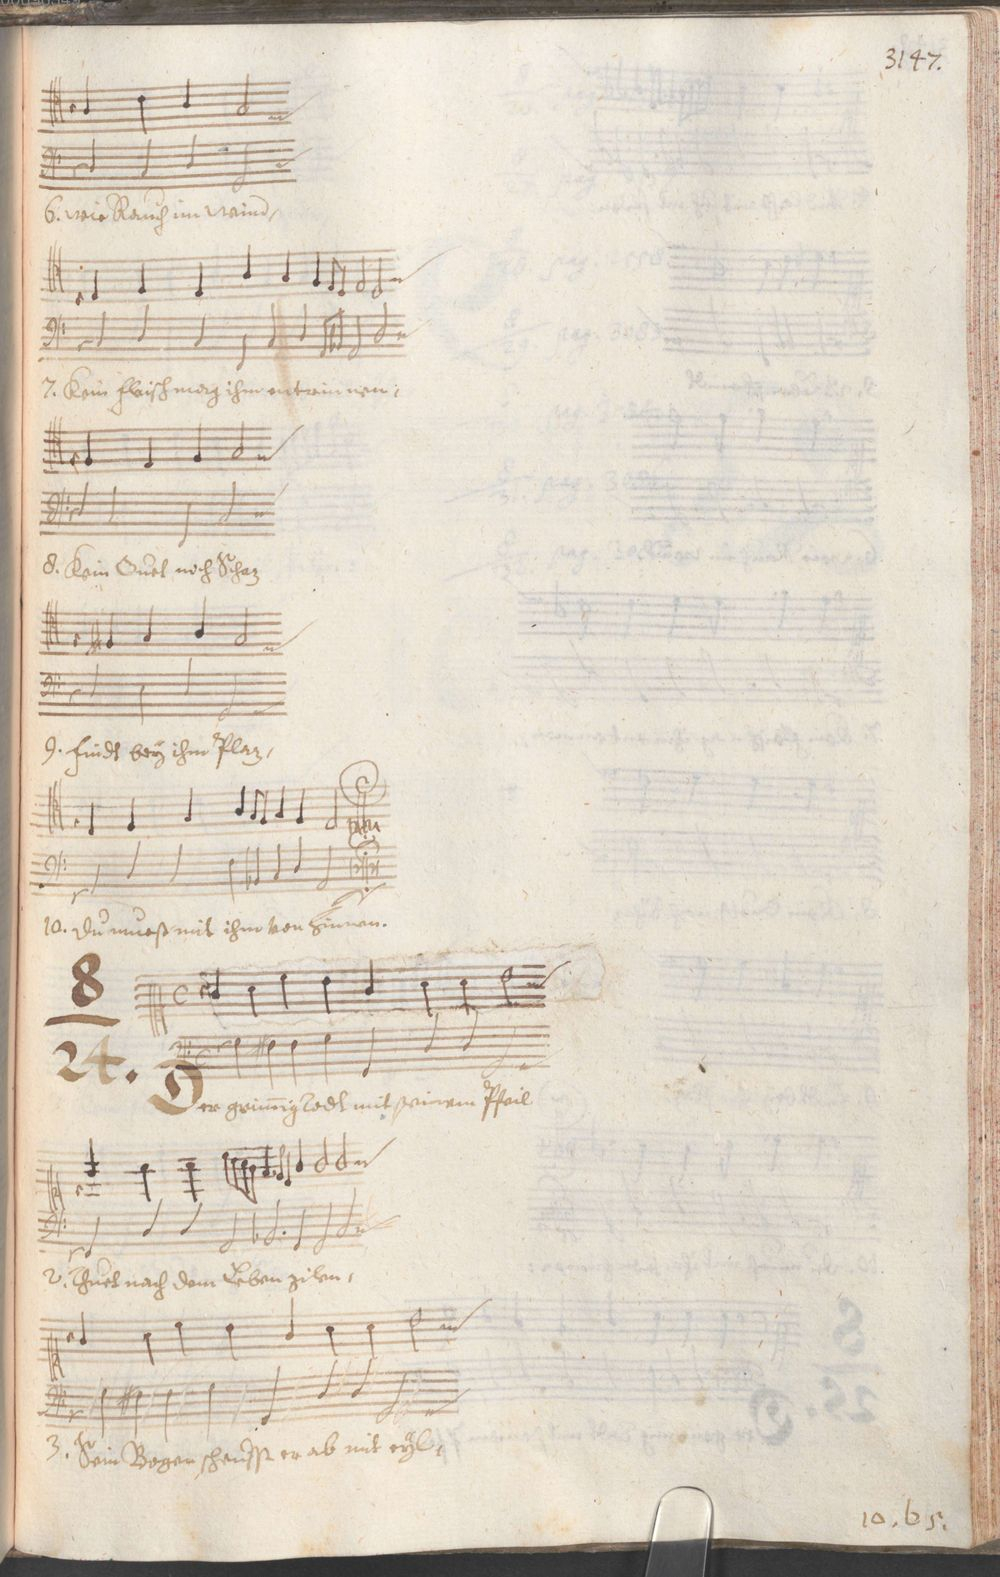 3147.
6. wie Rauch im Wind,
7. Kein fleisch mag ihm entrinnen,
8. Kein Guet noch Schaz
9. findt beÿ ihm Plaz,
10. Du muest mit ihm von hinnen.
8
24. Der grim̄ig Todt mit seinem Pfeil
2. Thuet nach dem Leben zilen,
3. Sein Bogen scheusst er ab mit eÿl,
10. b 5.